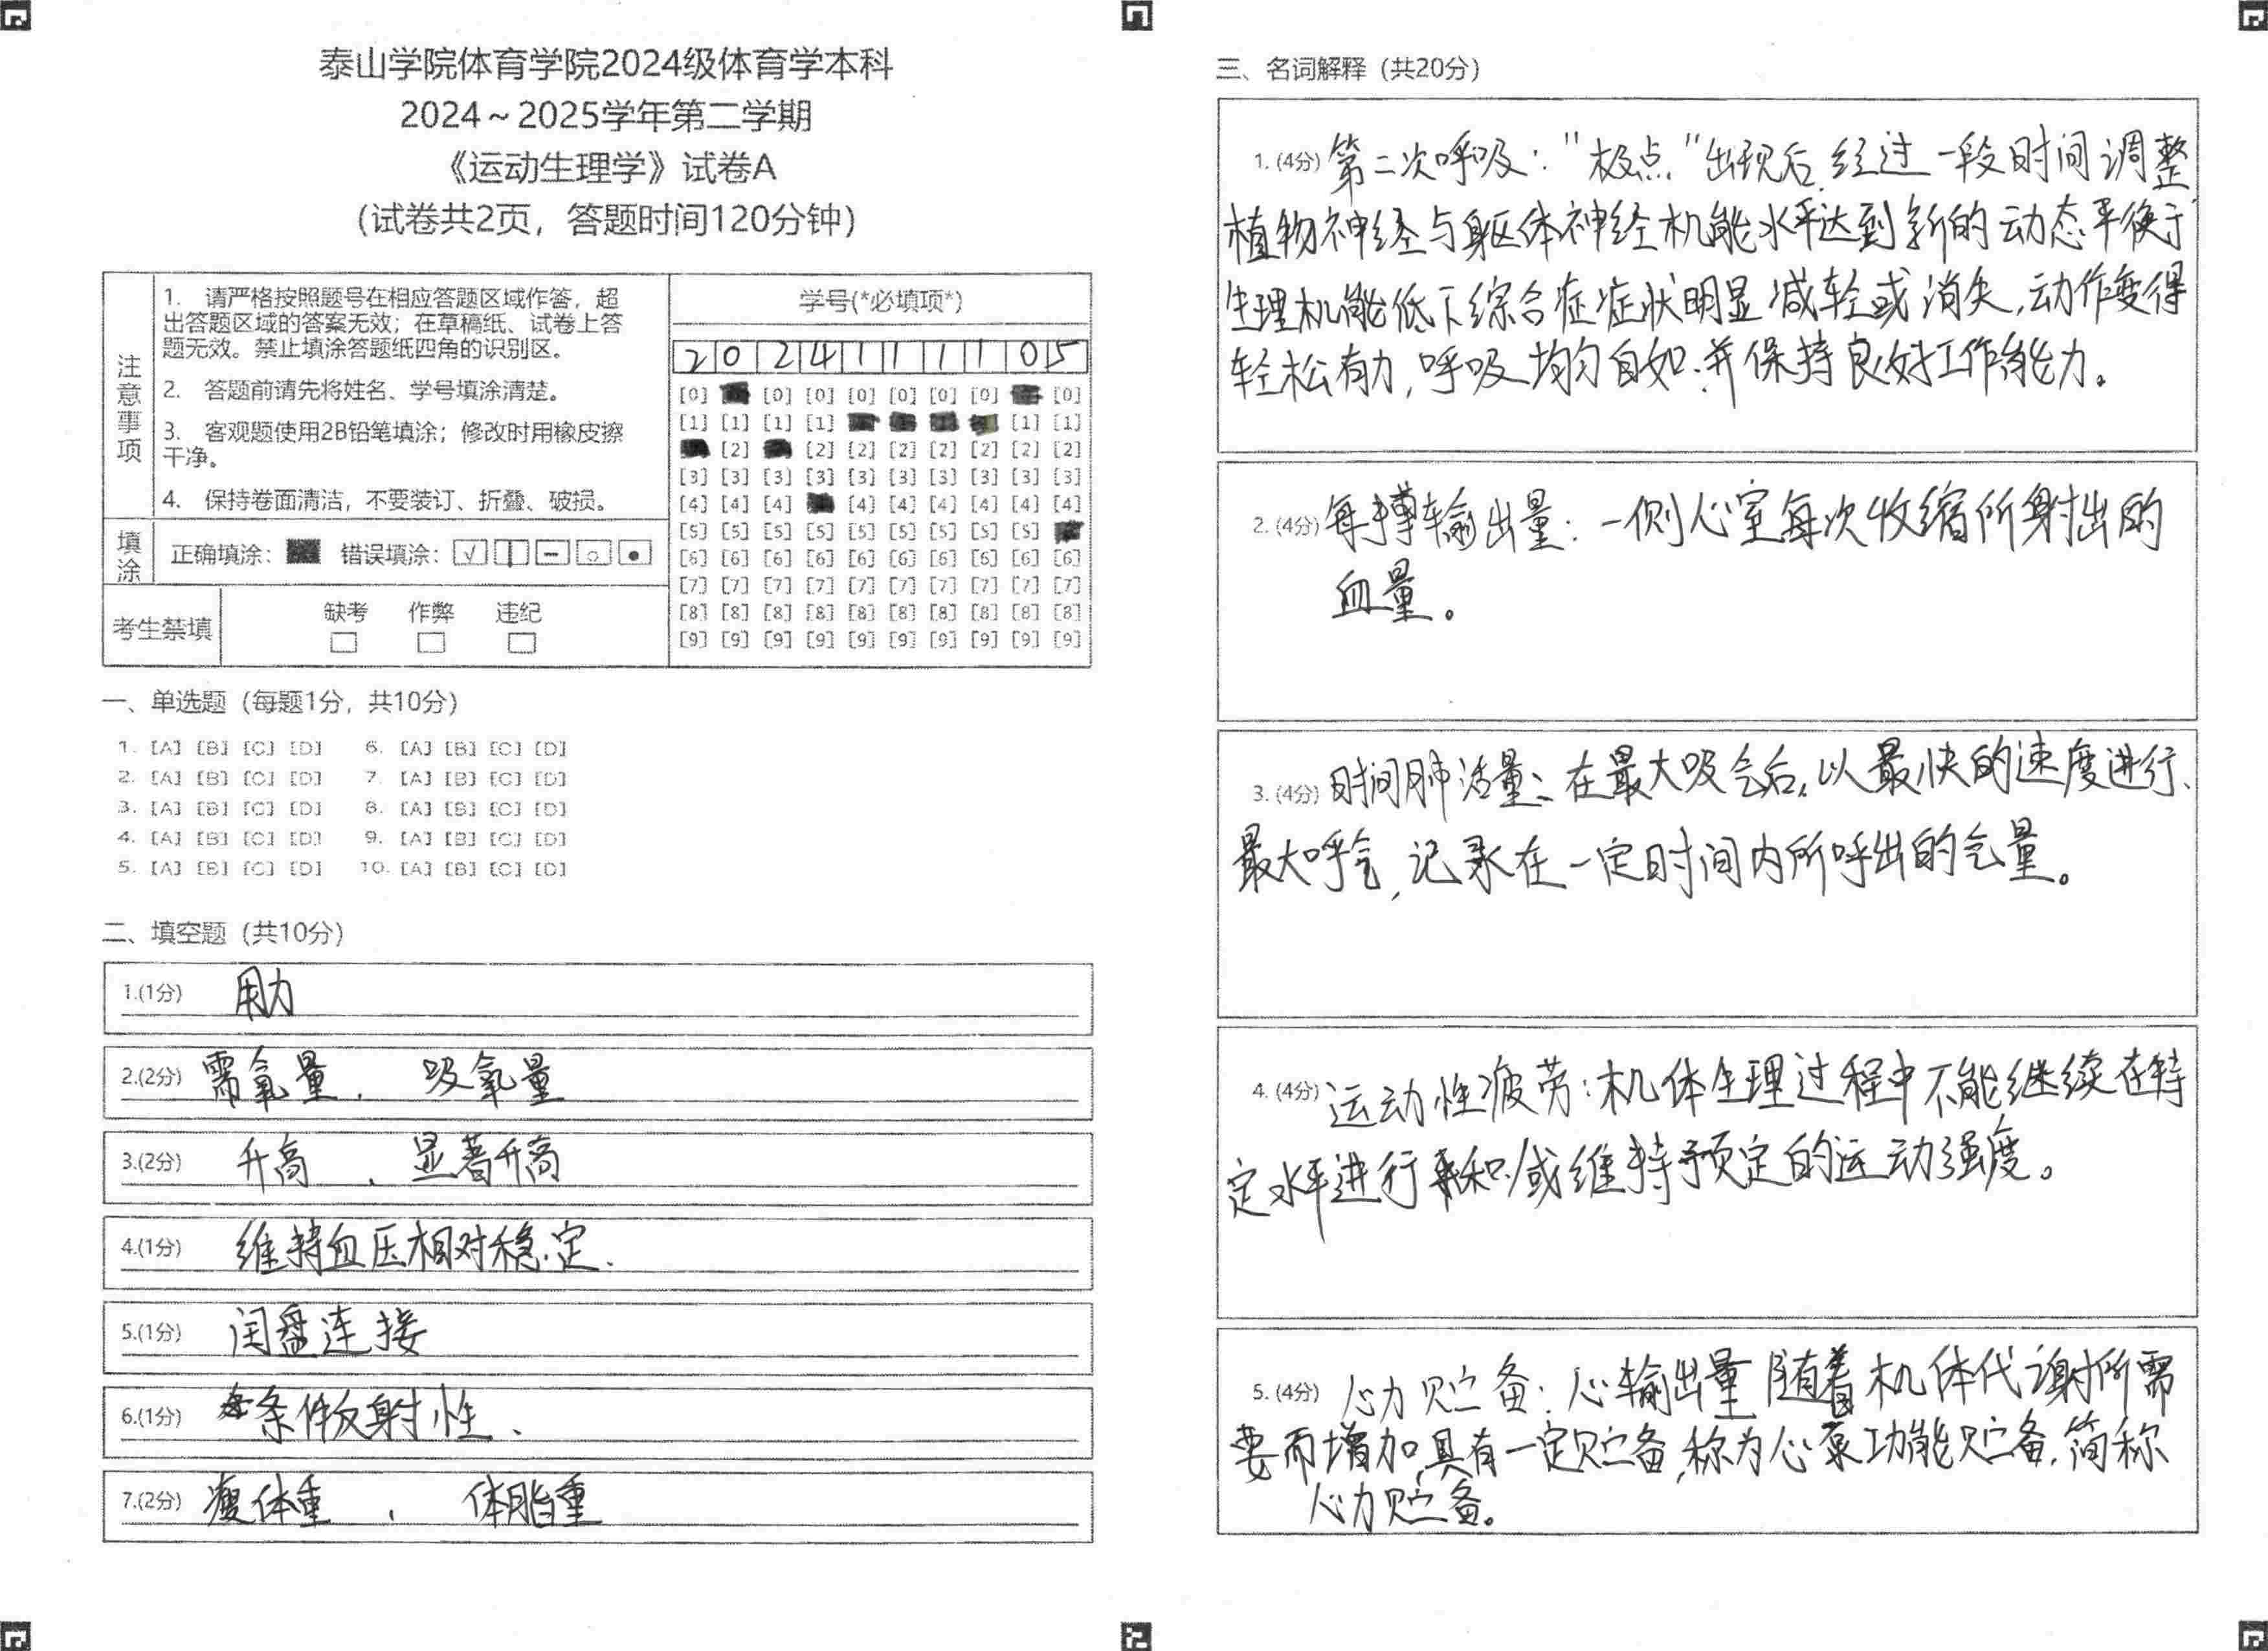 泰山学院体育学院2024级体育学本科
2024～2025学年第二学期
《运动生理学》试卷A
(试卷共2页，答题时间120分钟)
注意事项
1. 请严格按照题号在相应答题区域作答，超
出答题区域的答案无效；在草稿纸、试卷上答
题无效。禁止填涂答题纸四角的识别区。
2. 答题前请先将姓名、学号填涂清楚。
3. 客观题使用2B铅笔填涂；修改时用橡皮擦
干净。
4. 保持卷面清洁，不要装订、折叠、破损。
填涂 正确填涂： 错误填涂：
考生禁填 缺考 作弊 违纪
学号(*必填项*)
2 0 2 4 1 1 1 1 0 5
[0] [0] [0] [0] [0] [0] [0] [0]
[1] [1] [1] [1] [1] [1]
[2] [2] [2] [2] [2] [2] [2] [2]
[3] [3] [3] [3] [3] [3] [3] [3] [3] [3]
[4] [4] [4] [4] [4] [4] [4] [4] [4]
[5] [5] [5] [5] [5] [5] [5] [5] [5]
[6] [6] [6] [6] [6] [6] [6] [6] [6] [6]
[7] [7] [7] [7] [7] [7] [7] [7] [7] [7]
[8] [8] [8] [8] [8] [8] [8] [8] [8] [8]
[9] [9] [9] [9] [9] [9] [9] [9] [9] [9]
一、单选题（每题1分，共10分）
1. [A] [B] [C] [D] 6. [A] [B] [C] [D]
2. [A] [B] [C] [D] 7. [A] [B] [C] [D]
3. [A] [B] [C] [D] 8. [A] [B] [C] [D]
4. [A] [B] [C] [D] 9. [A] [B] [C] [D]
5. [A] [B] [C] [D] 10. [A] [B] [C] [D]
二、填空题（共10分）
1.(1分) 用力
2.(2分) 需氧量、 吸氧量
3.(2分) 升高 、显著升高
4.(1分) 维持血压相对稳定.
5.(1分) 闰盘连接
6.(1分) 条件反射性、
7.(2分) 瘦体重 、 体脂重
三、名词解释（共20分）
1. (4分) 第二次呼吸："极点"出现后,经过一段时间调整
植物神经与躯体神经机能水平达到新的动态平衡于
生理机能低下综合症症状明显减轻或消失,动作变得
轻松有力,呼吸均匀自如.并保持良好工作能力。
2. (4分) 每搏输出量：一侧心室每次收缩所射出的
血量。
3. (4分) 时间肺活量：在最大吸气后,以最快的速度进行、
最大呼气,记录在一定时间内所呼出的气量。
4. (4分) 运动性疲劳：机体生理过程中不能继续在特
定水平进行和/或维持预定的运动强度。
5. (4分) 心力贮备：心输出量随着机体代谢所需
要而增加,具有一定贮备,称为心泵功能贮备.简称
心力贮备。